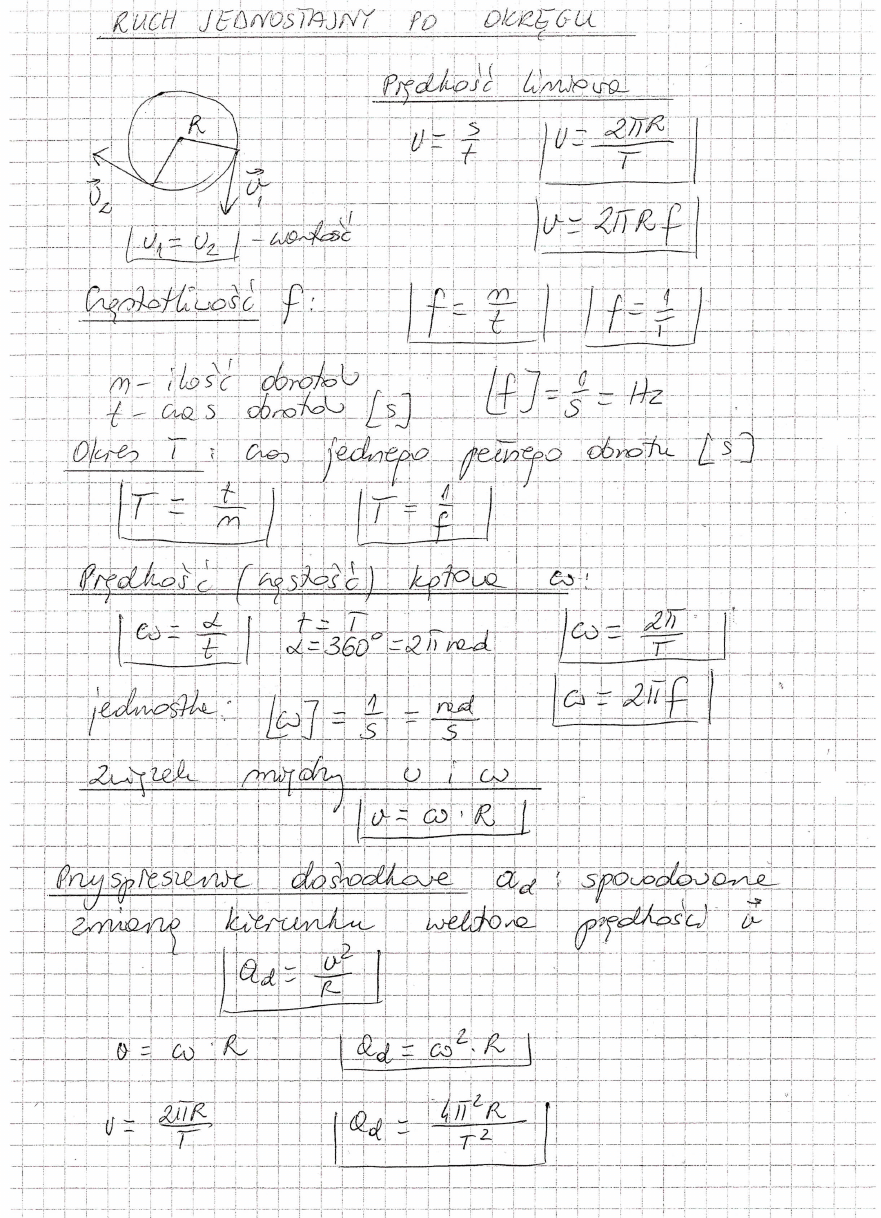 RUCH JEDNOSTAJNY PO OKRĘGU
Prędkość liniowa
R
v⃗₂ v⃗₁
v = s/t v = 2πR/T
v₁ = v₂ - wartość
v = 2πRf
Częstotliwość f: f = n/t f = 1/T
n - ilość obrotów [f] = 1/s = Hz
t - czas obrotów [s]
Okres T: czas jednego pełnego obrotu [s]
T = t/n T = 1/f
Prędkość (częstość) kątowa ω:
ω = α/t t = T ω = 2π/T
α = 360° = 2π rad
jednostka: [ω] = 1/s = rad/s ω = 2πf
Związek między v i ω
v = ω · R
Przyspieszenie dośrodkowe a_d: spowodowane
zmianą kierunku wektora prędkości v⃗
a_d = v²/R
v = ω · R a_d = ω² · R
v = 2πR/T a_d = 4π²R/T²